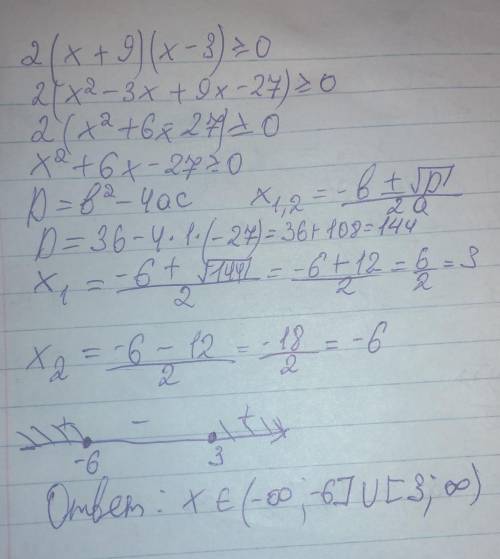 2(x + 9)(x - 3) ≥ 0
2(x² - 3x + 9x - 27) ≥ 0
2(x² + 6x - 27) ≥ 0
x² + 6x - 27 ≥ 0
D = b² - 4ac x₁,₂ = (-b + √D) / 2a
D = 36 - 4 · 1 · (-27) = 36 + 108 = 144
x₁ = (-6 + √144) / 2 = (-6 + 12) / 2 = 6/2 = 3
x₂ = (-6 - 12) / 2 = -18/2 = -6
+ - +
-6 3
Ответ: x ∈ (-∞; -6] ∪ [3; ∞)